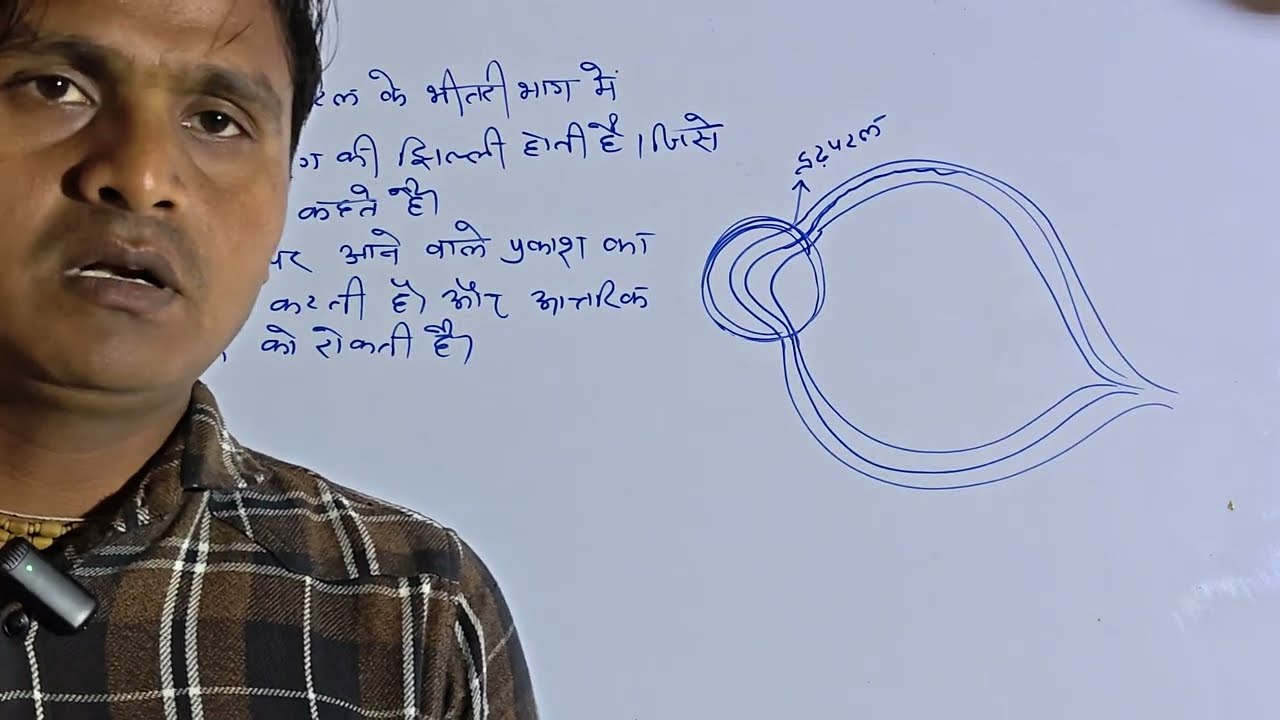 के भीतरी भाग में
की झिल्ली होती है। जिसे
कहते है।
पर आने वाले प्रकाश का
करती है। और आन्तरिक
को रोकती है।
दृढ़पटल